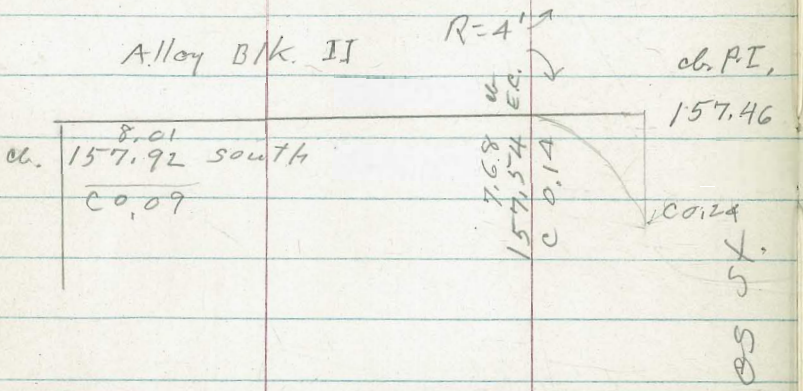 Alley Blk. II
R=4'
cb. P.I.
157.46
8.01
cb. 157.92 south
C 0.09
cb E.C.
7.68
157.54
C 0.14
C 0.24
ST.